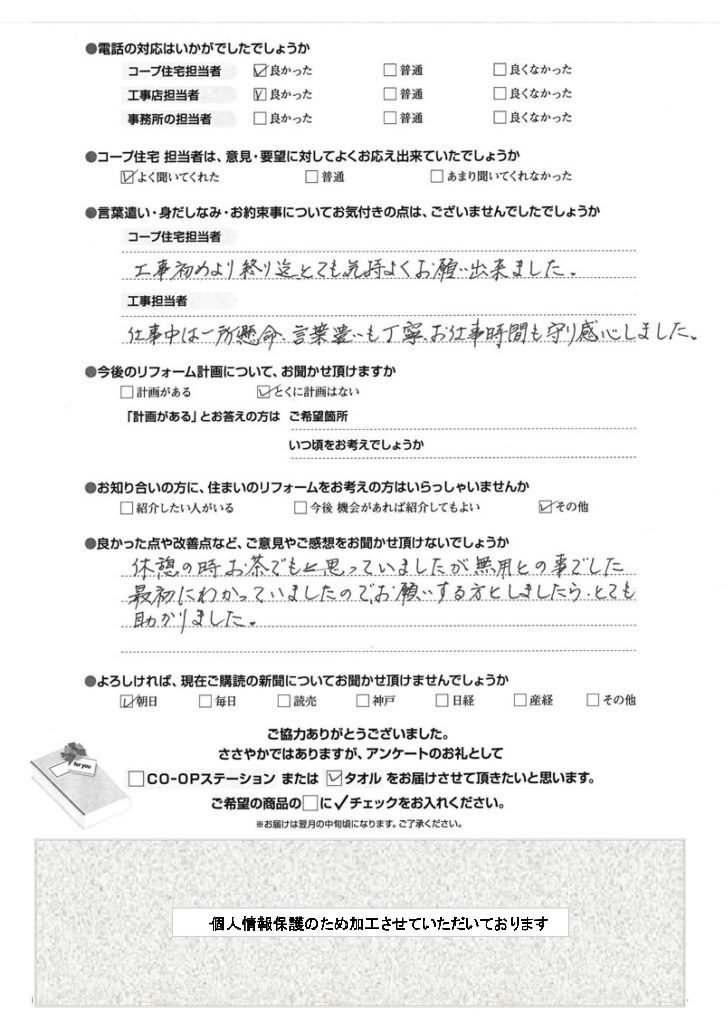 ●電話の対応はいかがでしたでしょうか
コープ住宅担当者 ☑良かった □普通 □良くなかった
工事店担当者 ☑良かった □普通 □良くなかった
事務所の担当者 □良かった □普通 □良くなかった
●コープ住宅 担当者は、意見・要望に対してよくお応え出来ていたでしょうか
☑よく聞いてくれた □普通 □あまり聞いてくれなかった
●言葉遣い・身だしなみ・お約束事についてお気付きの点は、ございませんでしたでしょうか
コープ住宅担当者
工事初めより終り迄とても気持よくお願い出来ました。
工事担当者
仕事中は一所懸命、言葉遣いも丁寧、お仕事時間も守り感心しました。
●今後のリフォーム計画について、お聞かせ頂けますか
□計画がある ☑とくに計画はない
「計画がある」とお答えの方は ご希望箇所
いつ頃をお考えでしょうか
●お知り合いの方に、住まいのリフォームをお考えの方はいらっしゃいませんか
□紹介したい人がいる □今後 機会があれば紹介してもよい ☑その他
●良かった点や改善点など、ご意見やご感想をお聞かせ頂けないでしょうか
休憩の時お茶でもと思っていましたが無用との事でした
最初にわかっていましたので、お願いする方としましたら、とても
助かりました。
●よろしければ、現在ご購読の新聞についてお聞かせ頂けませんでしょうか
☑朝日 □毎日 □読売 □神戸 □日経 □産経 □その他
ご協力ありがとうございました。
ささやかではありますが、アンケートのお礼として
for you
□CO-OPステーション または ☑タオル をお届けさせて頂きたいと思います。
ご希望の商品の□に✓チェックをお入れください。
※お届けは翌月の中旬頃になります。ご了承ください。
個人情報保護のため加工させていただいております